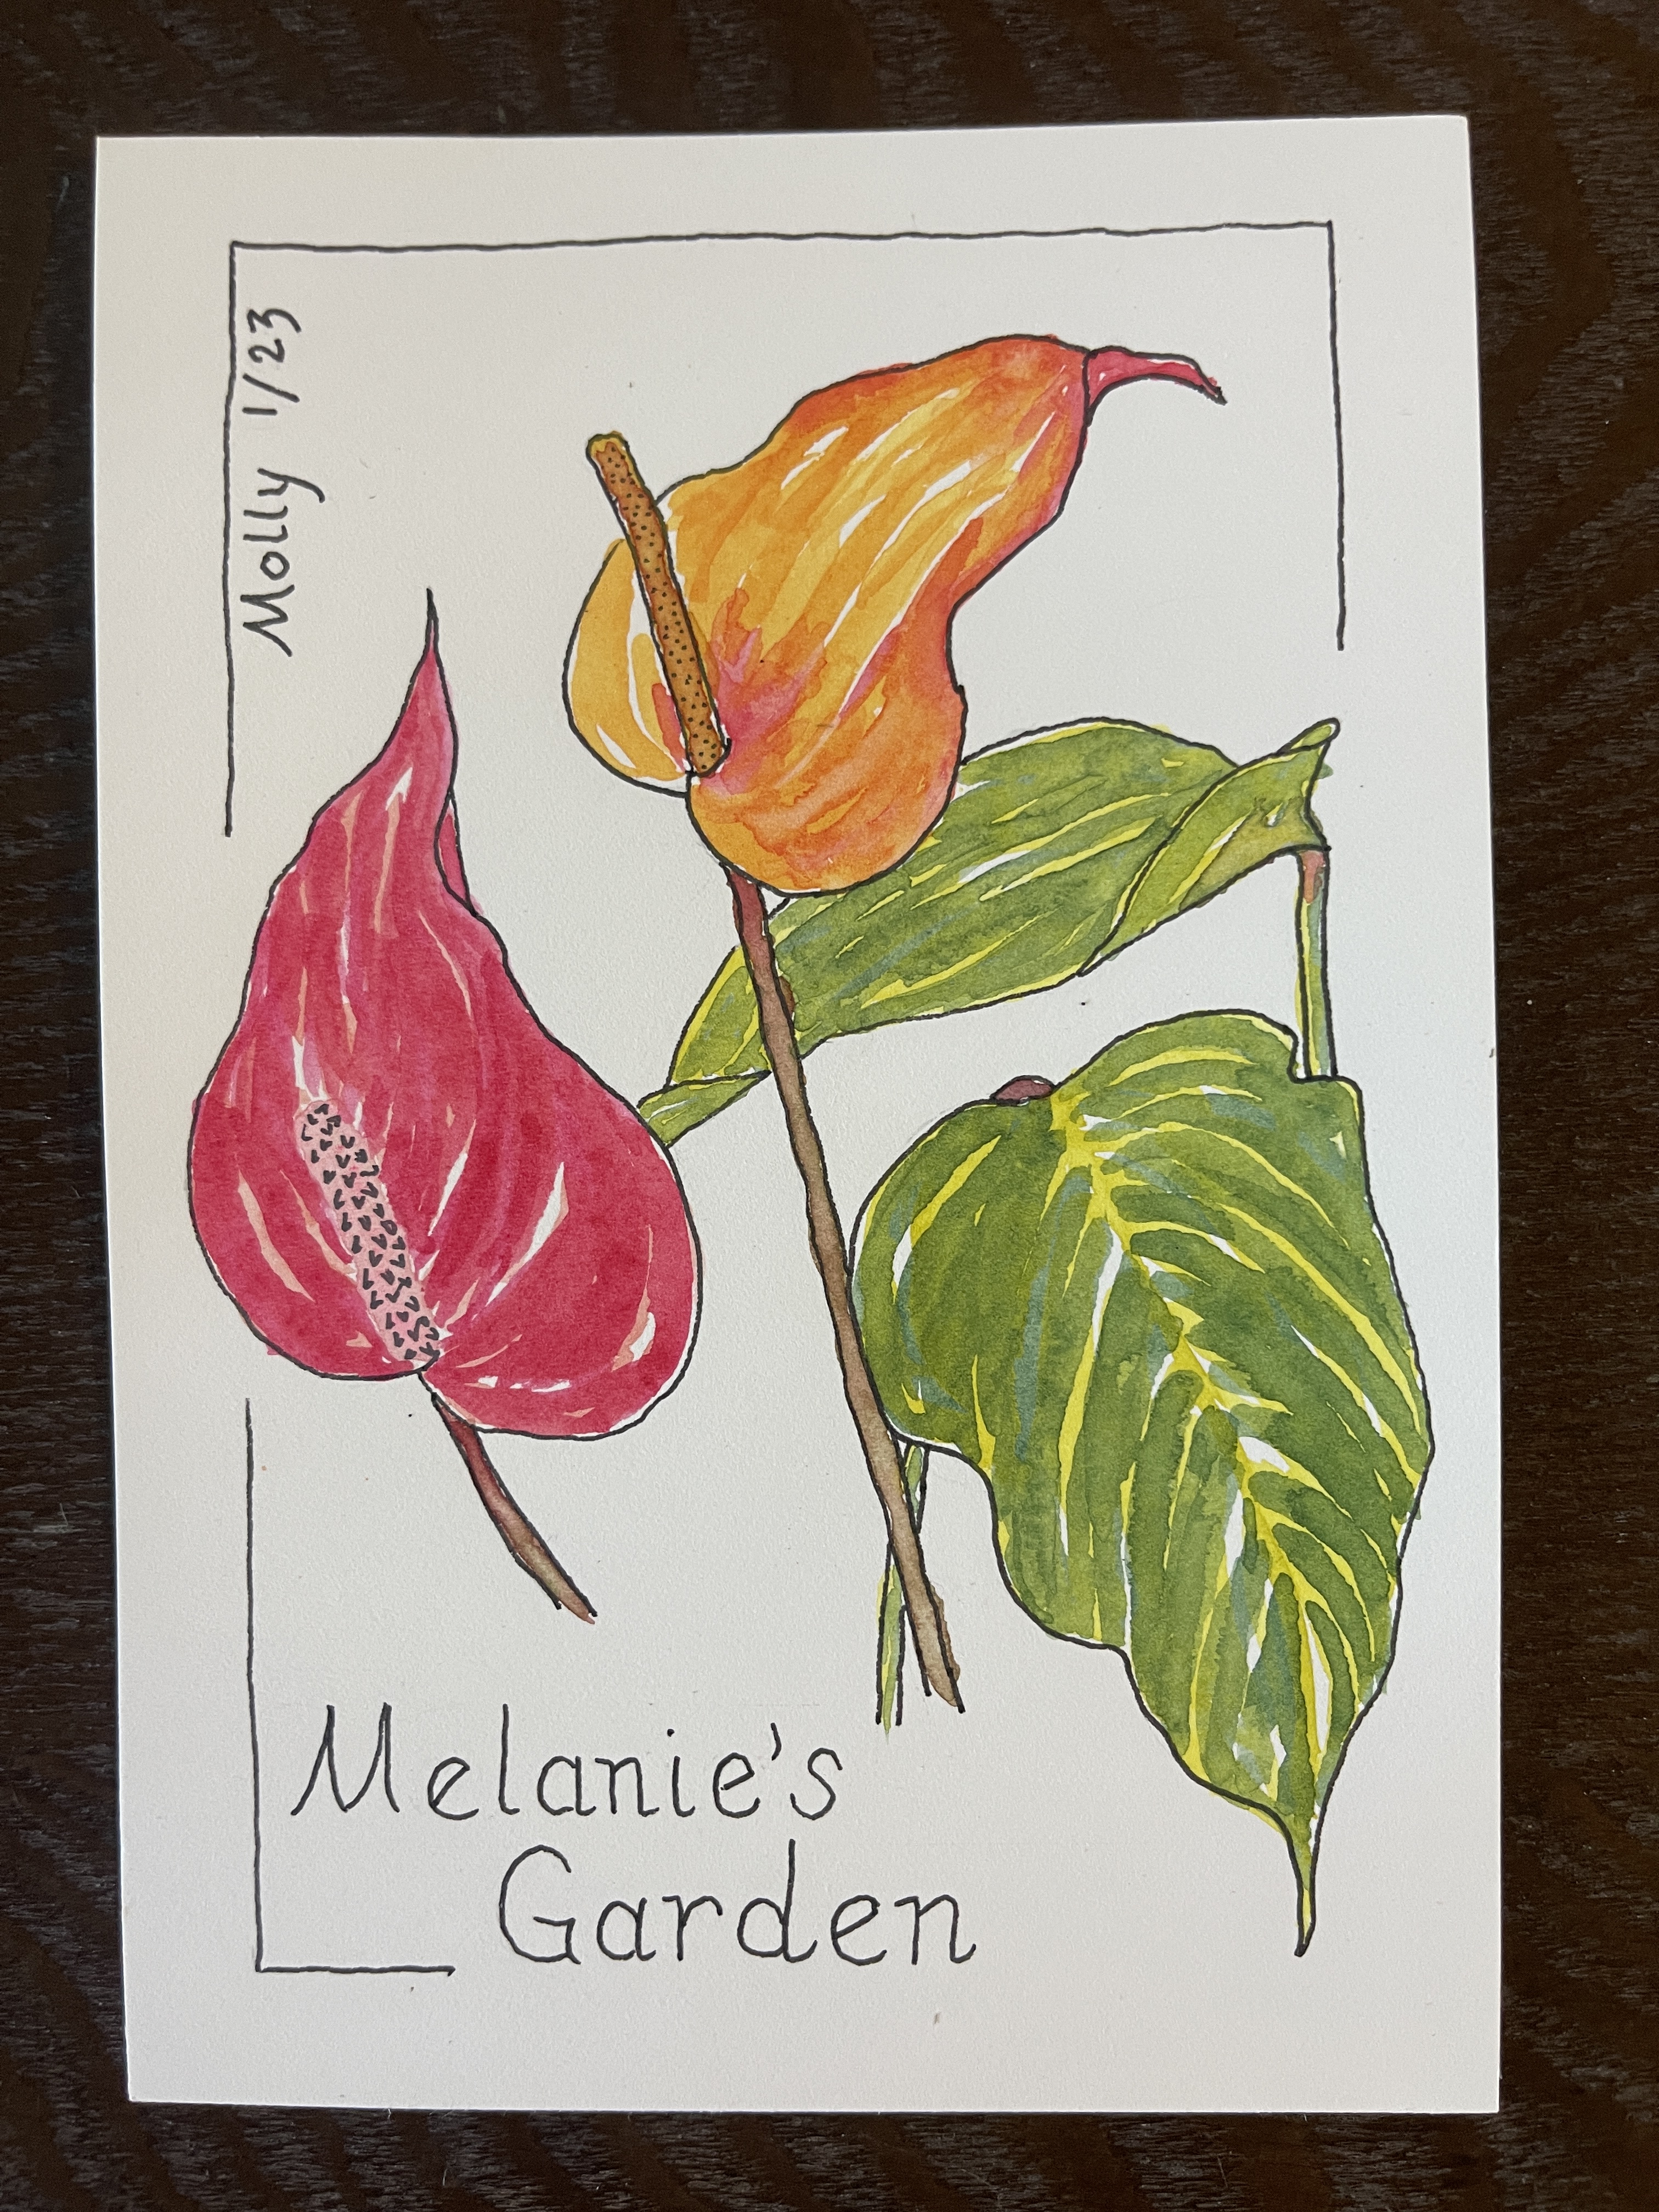 Molly 1/23
Melanie's
Garden